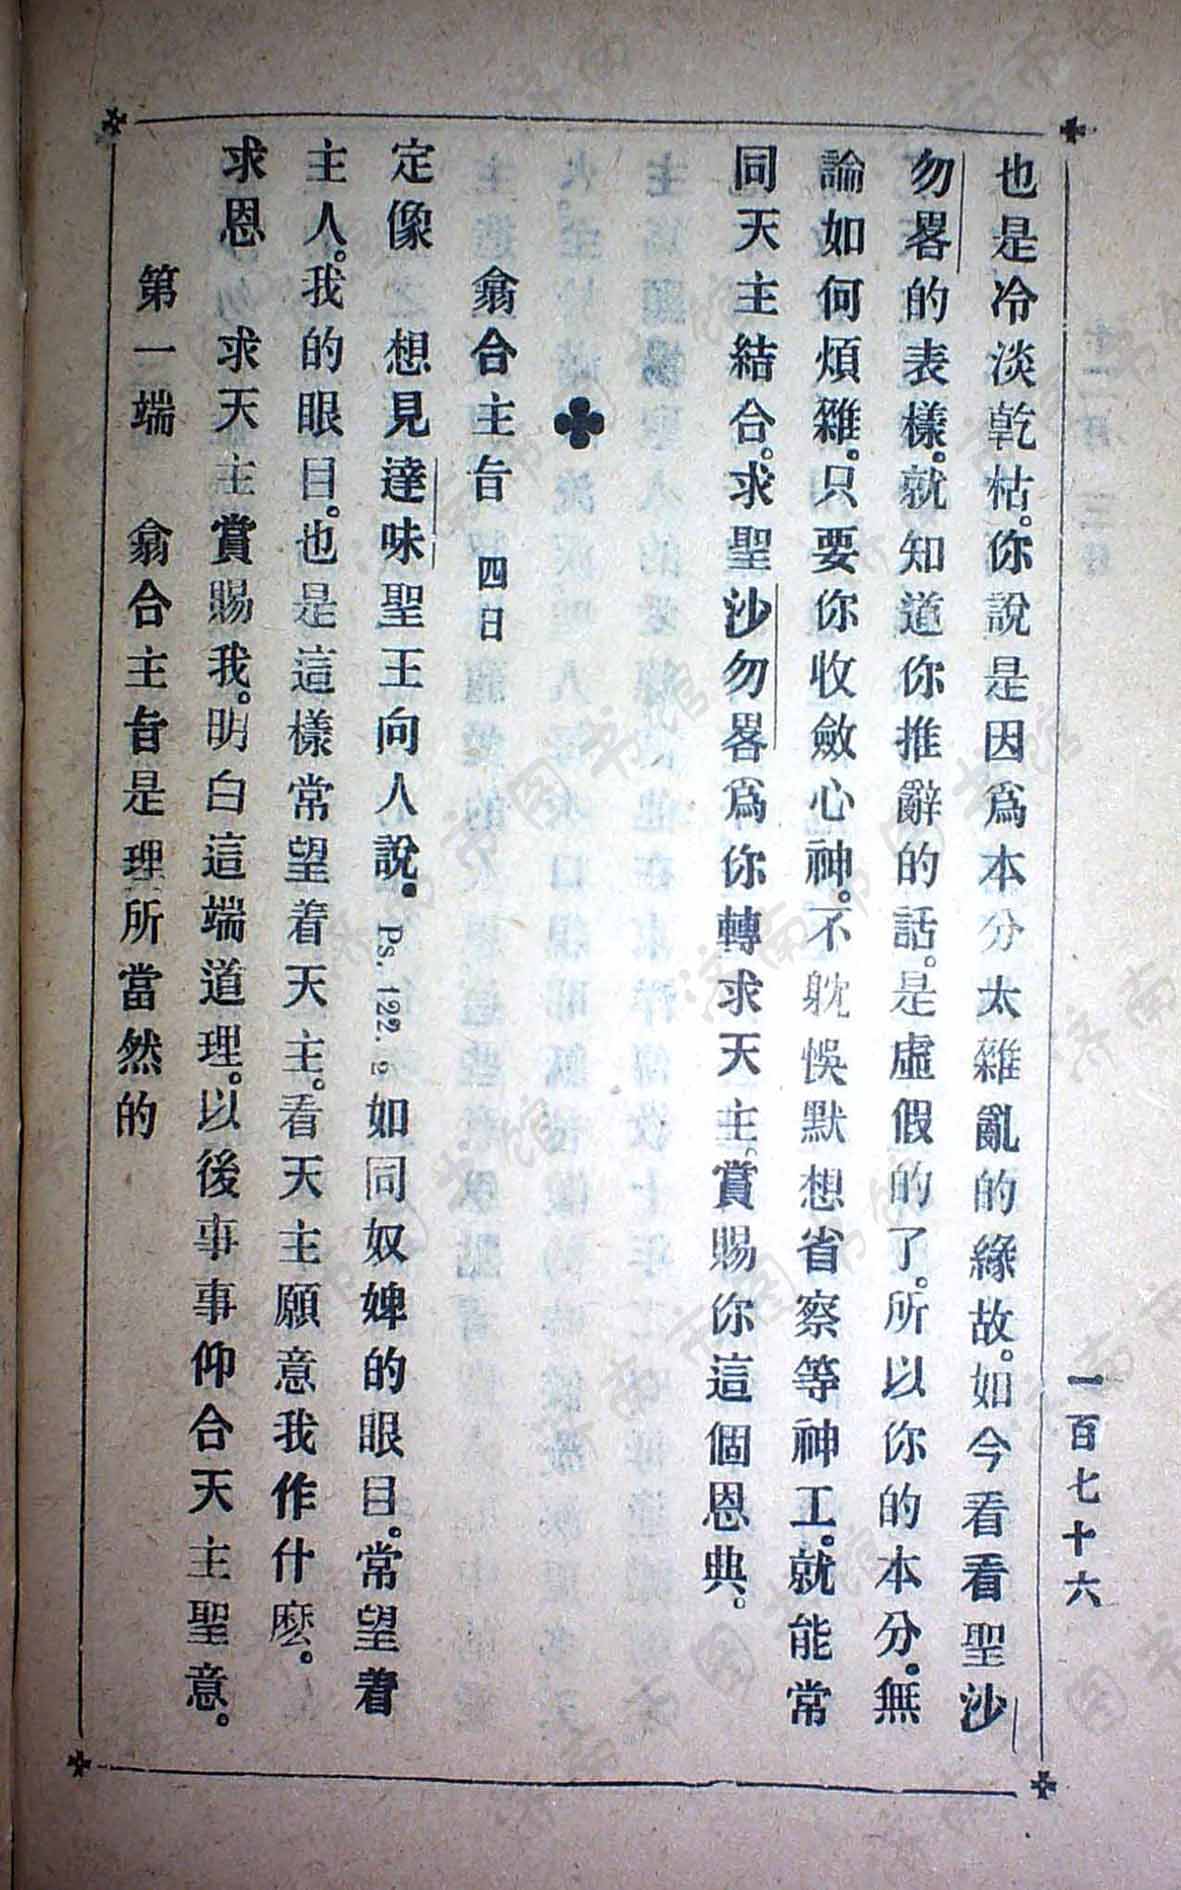 一百七十六
也是冷淡乾枯。你說是因爲本分太雜亂的緣故。如今看看聖沙
勿畧的表樣。就知道你推辭的話。是虛假的了。所以你的本分。無
論如何煩雜。只要你收斂心神。不躭悞默想省察等神工。就能常
同天主結合。求聖沙勿畧爲你轉求天主。賞賜你這個恩典。
翕合主旨 四日
定像 想見達味聖王向人說。Ps. 122. 2 如同奴婢的眼目。常望着
主人。我的眼目。也是這樣常望着天主。看天主願意我作什麽。
求恩 求天主賞賜我。明白這端道理。以後事事仰合天主聖意。
第一端 翕合主旨是理所當然的